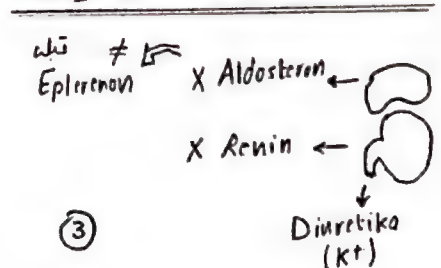 ≠
Eplerenon
X Aldosteron ←
X Renin ←
③
Diuretika
(K+)